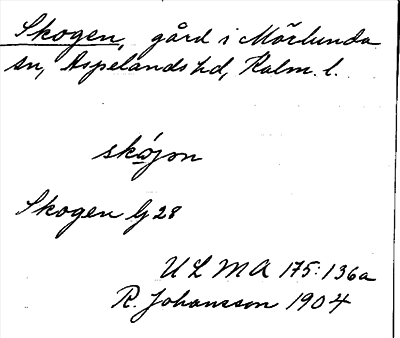 Skogen, gård i Mörlunda
sn, Aspelands hd, Kalm. l.
skójon
Skogen G 28
U L M A 175:136a
R. Johansson 1904